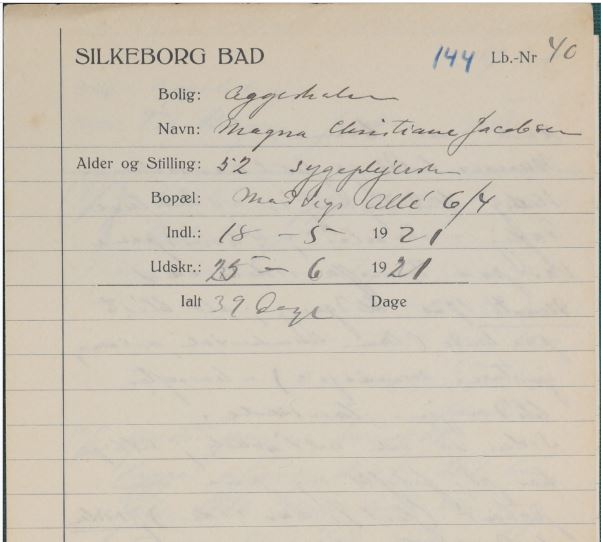 SILKEBORG BAD 144 Lb.-Nr 40
Bolig: Aggershalen
Navn: Magna Christiane Jacobsen
Alder og Stilling: 52 sygeplejerske
Bopæl: Madvigs Allé 6/4
Indl.: 18 - 5 - 1921
Udskr.: 25 - 6 1921
Ialt 39 Dage Dage